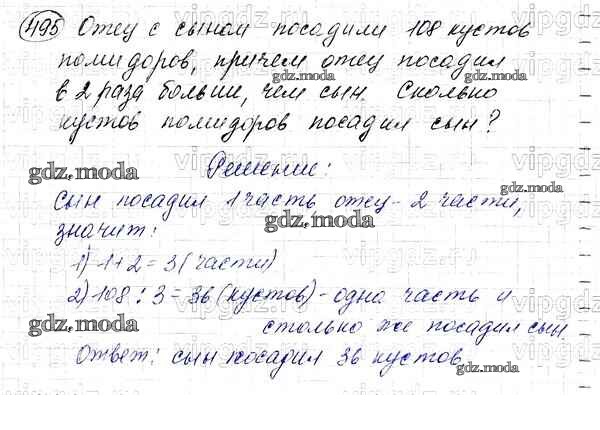 495 Отец с сыном посадили 108 кустов
помидоров, причем отец посадил
gdz.moda gdz.moda
в 2 раза больше, чем сын. Сколько
кустов помидоров посадил сын?
gdz.moda Решение: gdz.moda
Сын посадил 1 часть отец - 2 части,
gdz.moda
значит:
1) 1+2=3 (части)
2) 108 : 3 = 36 (кустов) - одна часть и
gdz.moda столько же посадил сын.
Ответ: сын посадил 36 кустов
gdz.moda gdz.moda